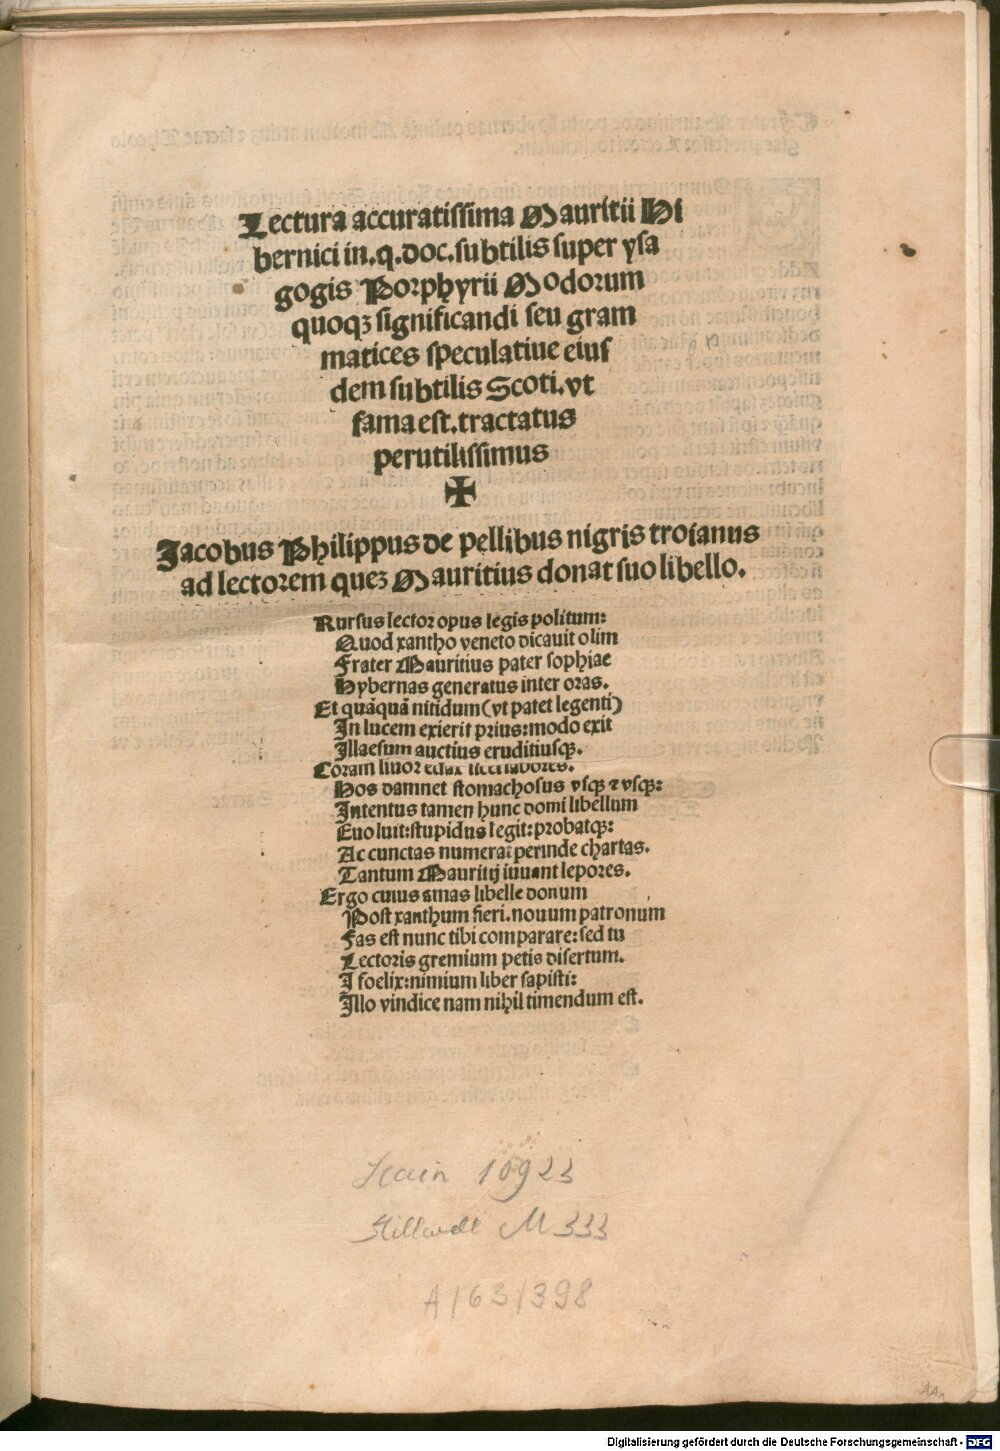 Lectura accuratissima Mauritii Hi
bernici in.q.doc.subtilis super ysa
gogis Porphyrii Modorum
quoqꝫ significandi seu gram
matices speculatiue eius
dem subtilis Scoti.vt
fama est.tractatus
perutilissimus
✠
Jacobus Philippus de pellibus nigris troianus
ad lectorem queꝫ Mauritius donat suo libello.
Rursus lector opus legis politum:
Quod xantho veneto dicauit olim
Frater Mauritius pater sophiae
Hybernas generatus inter oras.
Et quāquā nitidum (vt patet legenti)
In lucem exierit prius:modo exit
Illaesum auctius eruditiusqꝫ.
Coram liuor edax licet labores.
Hos damnet stomachosus vsqꝫ ⁊ vsqꝫ:
Intentus tamen hunc domi libellum
Euoluit:stupidus legit:probatqꝫ:
Ac cunctas numerat perinde chartas.
Tantum Mauritij iuuant lepores.
Ergo cuius amas libelle donum
Post xanthum fieri.nouum patronum
Fas est nunc tibi comparare:sed tu
Lectoris gremium petis disertum.
I foelix:nimium liber sapisti:
Illo vindice nam nihil timendum est.
Hain 10923
Stillwell M 333
A/63/398
Digitalisierung gefördert durch die Deutsche Forschungsgemeinschaft - DFG